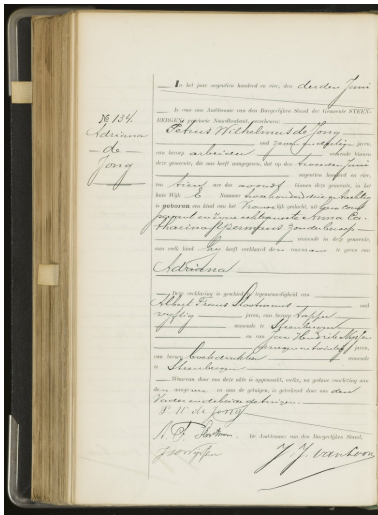 In het jaar negentien honderd en vier, den derden Juni
is voor ons Ambtenaar van den Burgerlijken Stand der Gemeente STEEN-
BERGEN, provincie Noordbrabant, verschenen:
No 134.
Adriana
de
Jong
Petrus Wilhelmus de Jong
oud jaren,
van beroep arbeider, wonende binnen
deze gemeente, die ons heeft aangegeven, dat op den tweeden Juni
negentien honderd en vier,
ten tien ure des avonds binnen deze gemeente, in het
huis Wijk E Nummer tweehonderd drie en tachtig
is geboren een kind van het Vrouwelijk geslacht, uit
en zijne echtgenoote Anna Ca-
tharina zonder beroep
wonende in deze gemeente,
aan welk kind hij heeft verklaard den voornaam te geven van
Adriana
Deze verklaring is geschied in tegenwoordigheid van
Albert Frans oud
vijftig jaren, van beroep
wonende te Steenbergen
en van Jan Hendrik
oud jaren,
van beroep boekdrukker wonende
te Steenbergen
Waarvan door ons deze akte is opgemaakt, welke, na gedane voorlezing aan
den en aan de getuigen, is geteekend door ons den
Vader en de beide getuigen.
P W de Jong
De Ambtenaar van den Burgerlijken Stand,
J. J. van Loon